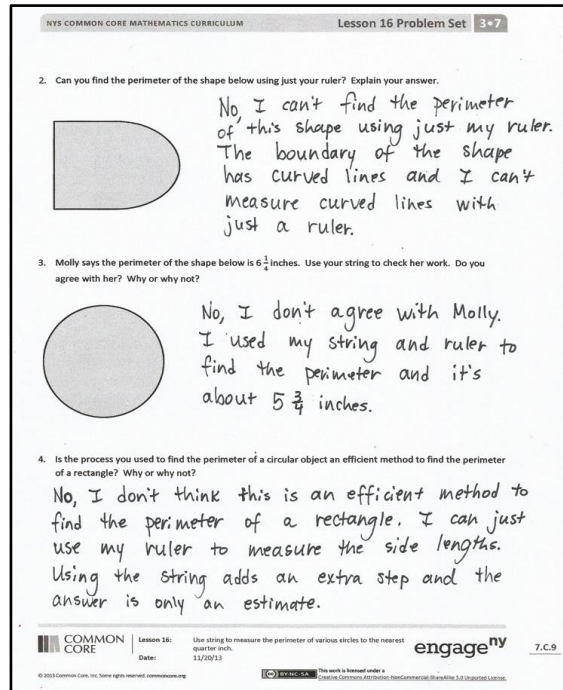 NYS COMMON CORE MATHEMATICS CURRICULUM Lesson 16 Problem Set 3•7
2. Can you find the perimeter of the shape below using just your ruler? Explain your answer.
No, I can't find the perimeter
of this shape using just my ruler.
The boundary of the shape
has curved lines and I can't
measure curved lines with
just a ruler.
3. Molly says the perimeter of the shape below is 6 1/4 inches. Use your string to check her work. Do you
agree with her? Why or why not?
No, I don't agree with Molly.
I used my string and ruler to
find the perimeter and it's
about 5 3/4 inches.
4. Is the process you used to find the perimeter of a circular object an efficient method to find the perimeter
of a rectangle? Why or why not?
No, I don't think this is an efficient method to
find the perimeter of a rectangle. I can just
use my ruler to measure the side lengths.
Using the string adds an extra step and the
answer is only an estimate.
COMMON
CORE
Lesson 16: Use string to measure the perimeter of various circles to the nearest
quarter inch.
Date: 11/20/13
engage ny
7.C.9
© 2013 Common Core, Inc. Some rights reserved. commoncore.org
(cc) BY-NC-SA
This work is licensed under a
Creative Commons Attribution-NonCommercial-ShareAlike 3.0 Unported License.